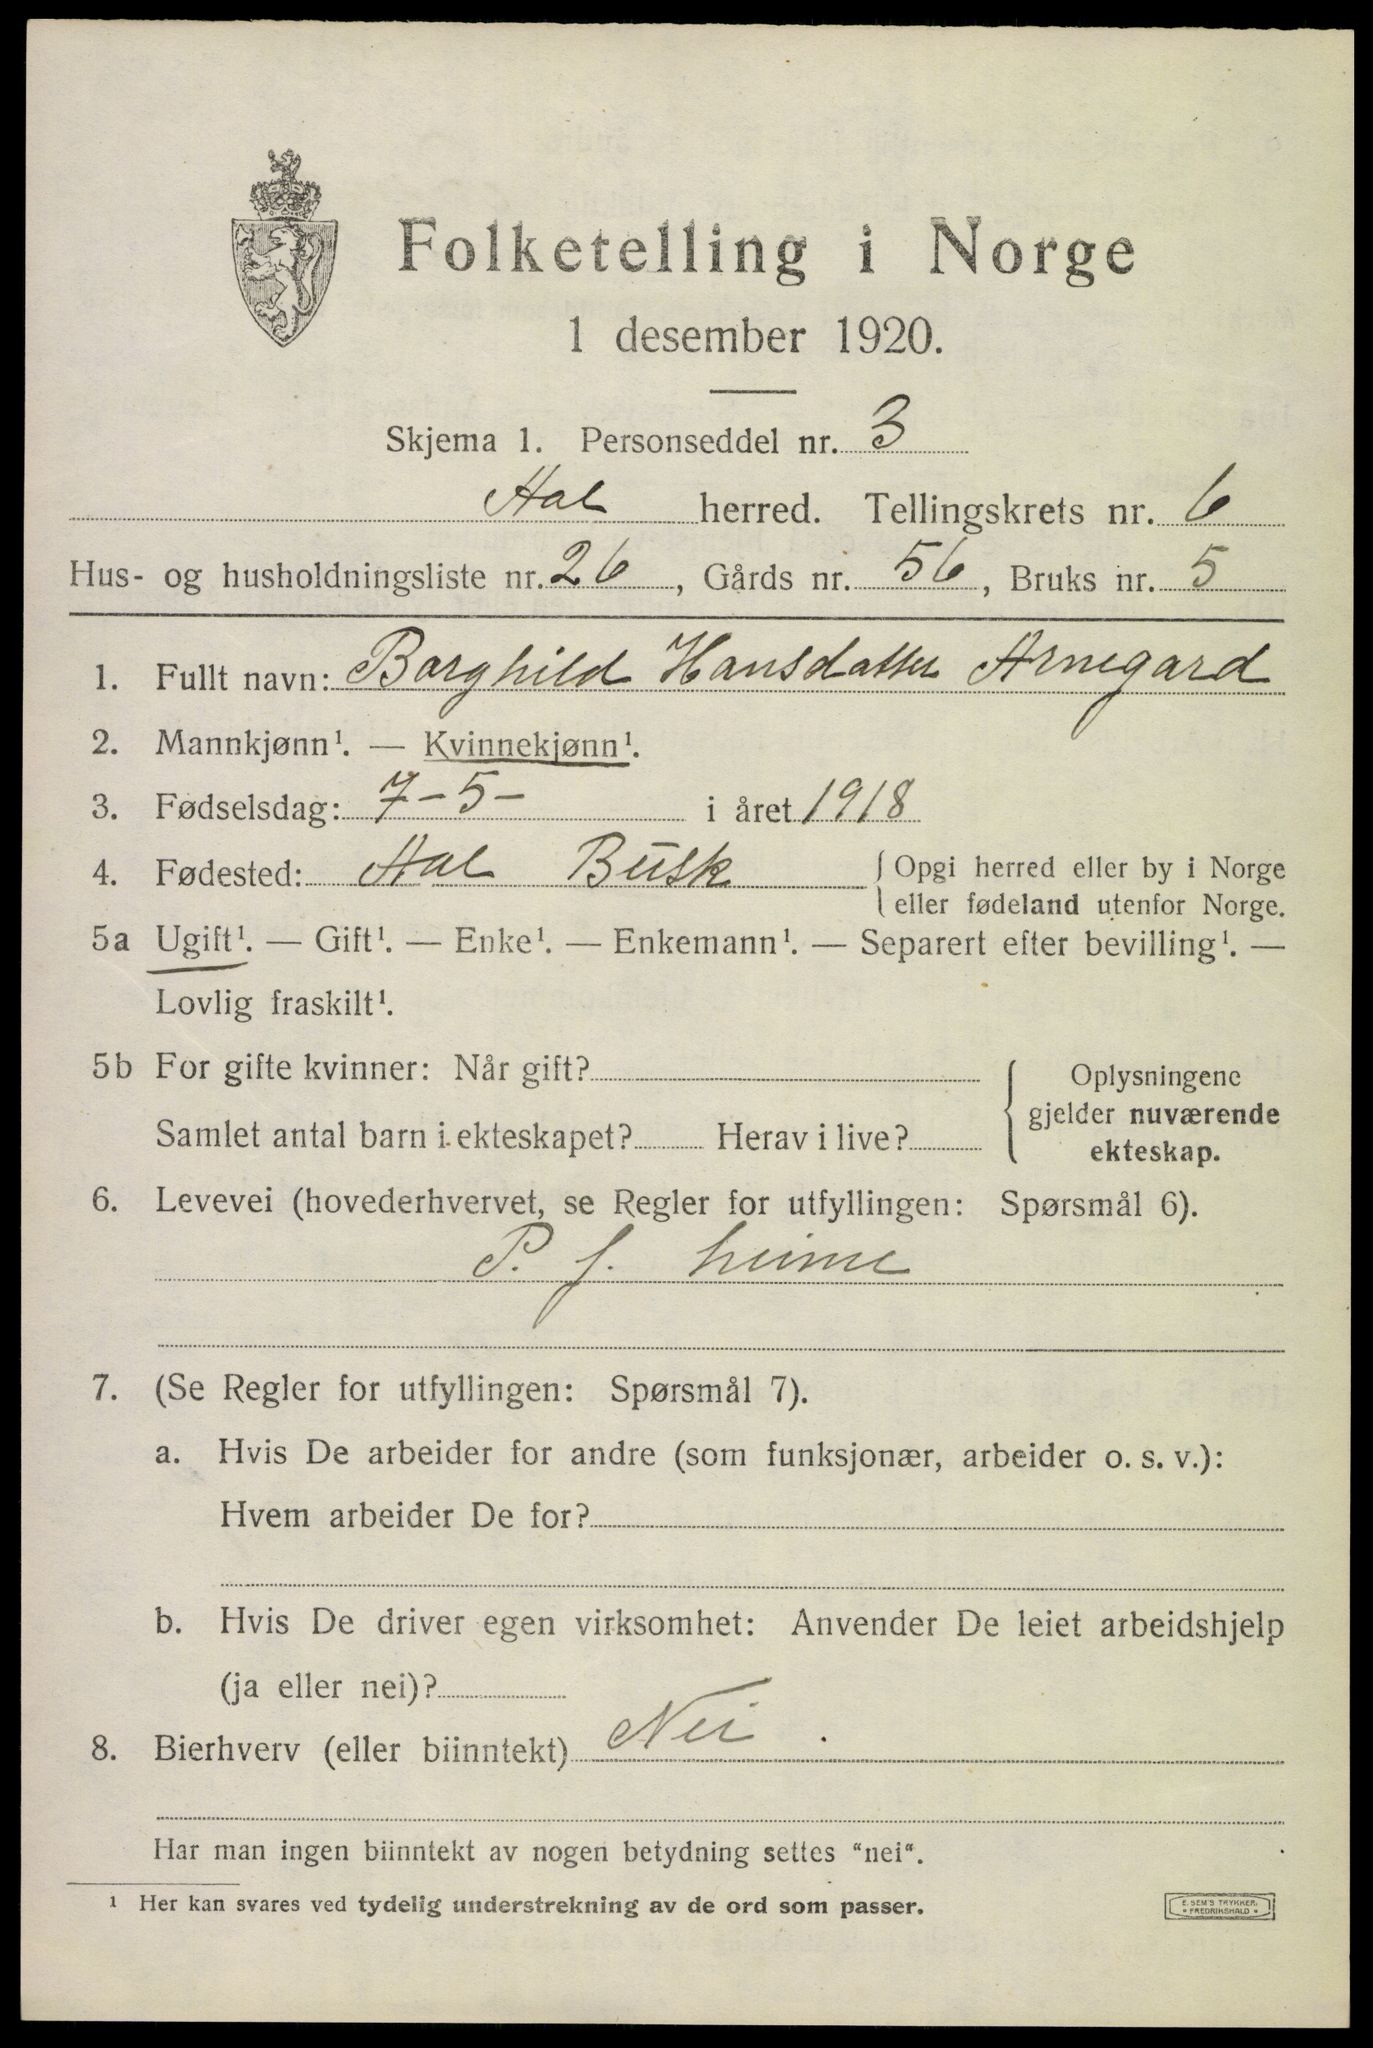 Folketelling i Norge
1 desember 1920.
Skjema 1. Personseddel nr. 3
Aal herred. Tellingskrets nr. 6
Hus- og husholdningsliste nr. 26, Gårds nr. 56, Bruks nr. 5
1. Fullt navn: Borghild Hansdatter Arnegard
2. Mannkjønn¹. — Kvinnekjønn¹.
3. Fødselsdag: 7-5- i året 1918
4. Fødested: Aal Busk { Opgi herred eller by i Norge
eller fødeland utenfor Norge.
5a Ugift¹. — Gift¹. — Enke¹. — Enkemann¹. — Separert efter bevilling¹. —
Lovlig fraskilt¹.
5b For gifte kvinner: Når gift?
Samlet antal barn i ekteskapet? Herav i live?
Oplysningene
gjelder nuværende
ekteskap.
6. Levevei (hovederhvervet, se Regler for utfyllingen: Spørsmål 6).
P. f. heime
7. (Se Regler for utfyllingen: Spørsmål 7).
a. Hvis De arbeider for andre (som funksjonær, arbeider o. s. v.):
Hvem arbeider De for?
b. Hvis De driver egen virksomhet: Anvender De leiet arbeidshjelp
(ja eller nei)?
8. Bierhverv (eller biinntekt) Nei
Har man ingen biinntekt av nogen betydning settes "nei".
¹ Her kan svares ved tydelig understrekning av de ord som passer.
E. SEM'S TRYKKERI
FREDRIKSHALD